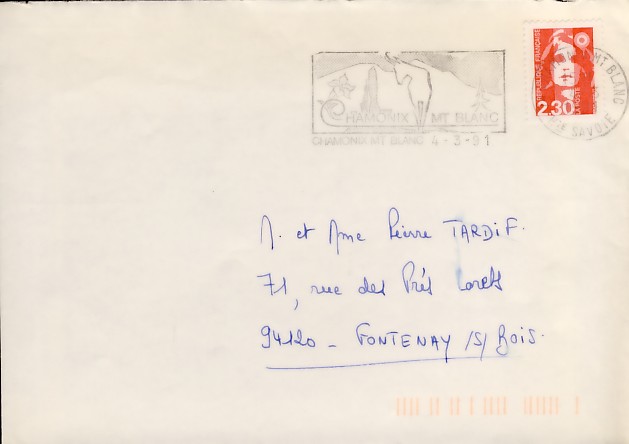 RÉPUBLIQUE FRANÇAISE
2,30
LA POSTE
MT BLANC
SAVOIE
CHAMONIX MT BLANC
CHAMONIX MT BLANC 4-3-91
M. et Mme Pierre TARDIF.
71, rue des Prés Lorets
94120 - FONTENAY /S/ BOIS.